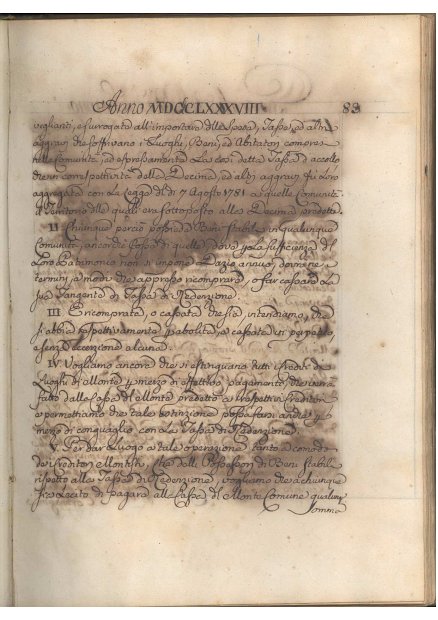 Anno MDCCLXXXVIII 83
vaglianti, e surrogata all'importare delle spese, Tasse, ed altri
aggravj che soffrivano i Luoghi, Beni, ed Abitatori comprese
nelle Comunità, ed espressamente La così detta Tassa, o accollo
correspettivo della Decima, ed altri aggravj fu Loro
aggregata con La Legge dì 7 Agosto 1781 a quelle Comunità
il Territorio delle quali era sottoposto alla Decima predetta.
II Chiunque perciò possiede Beni stabili in qualunque
Comunità, ancorché Cose di quelle, dove La sufficienza del
Loro Patrimonio non s'impone Dazio annuo, dovrà ne'
termini, e modi che appresso ricomprare, o far cassare La
sua Tangente di Tassa di Redenzione
III E ricomprata, o cassata che sia intendiamo, che
s'abbia rispettivamente abolita, e cassata in perpetuo
e senza eccezione alcuna.
IV Vogliamo ancora che si estinguano tutti i Crediti di
Luoghi di Monte per mezzo di effettivo pagamento che verrà
fatto dalla Cassa del Monte predetto a rispettivi Creditori
e permettiamo che tale estinzione possa farsi anche per
mezzo di conguaglio con La Tassa di Redenzione
V. Per dar Luogo a tale operazione tanto a comodo
dei Creditori Montisti che delli Possessori di Beni stabili
rispetto alla Tassa di Redenzione vogliamo che a chiunque
sia Lecito di pagare alla Cassa del Monte Comune qualunq
somma